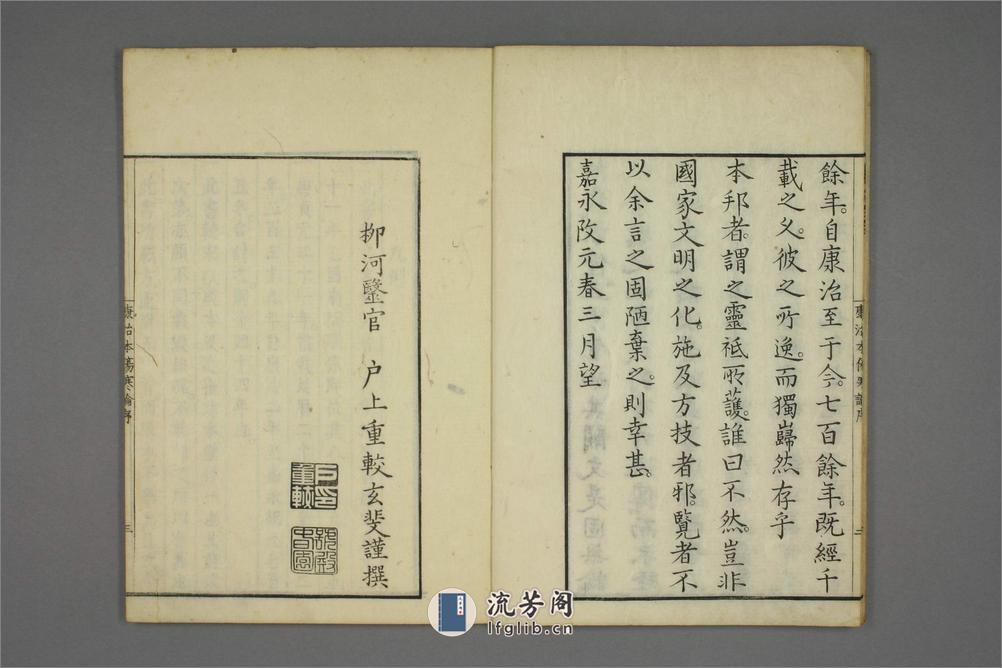 餘年。自康治至于今。七百餘年。既經千
載之久。彼之所逸。而獨巋然存乎
本邦者。謂之靈祗所護。誰曰不然。豈非
國家文明之化。施及方技者邪。覽者不
以余言之固陋棄之。則幸甚。
嘉永改元春三月望
康治本傷寒論序
三
柳河毉官 户上重較玄斐謹撰
戶上重較
康治本傷寒論序
三
流芳阁
lfglib.cn